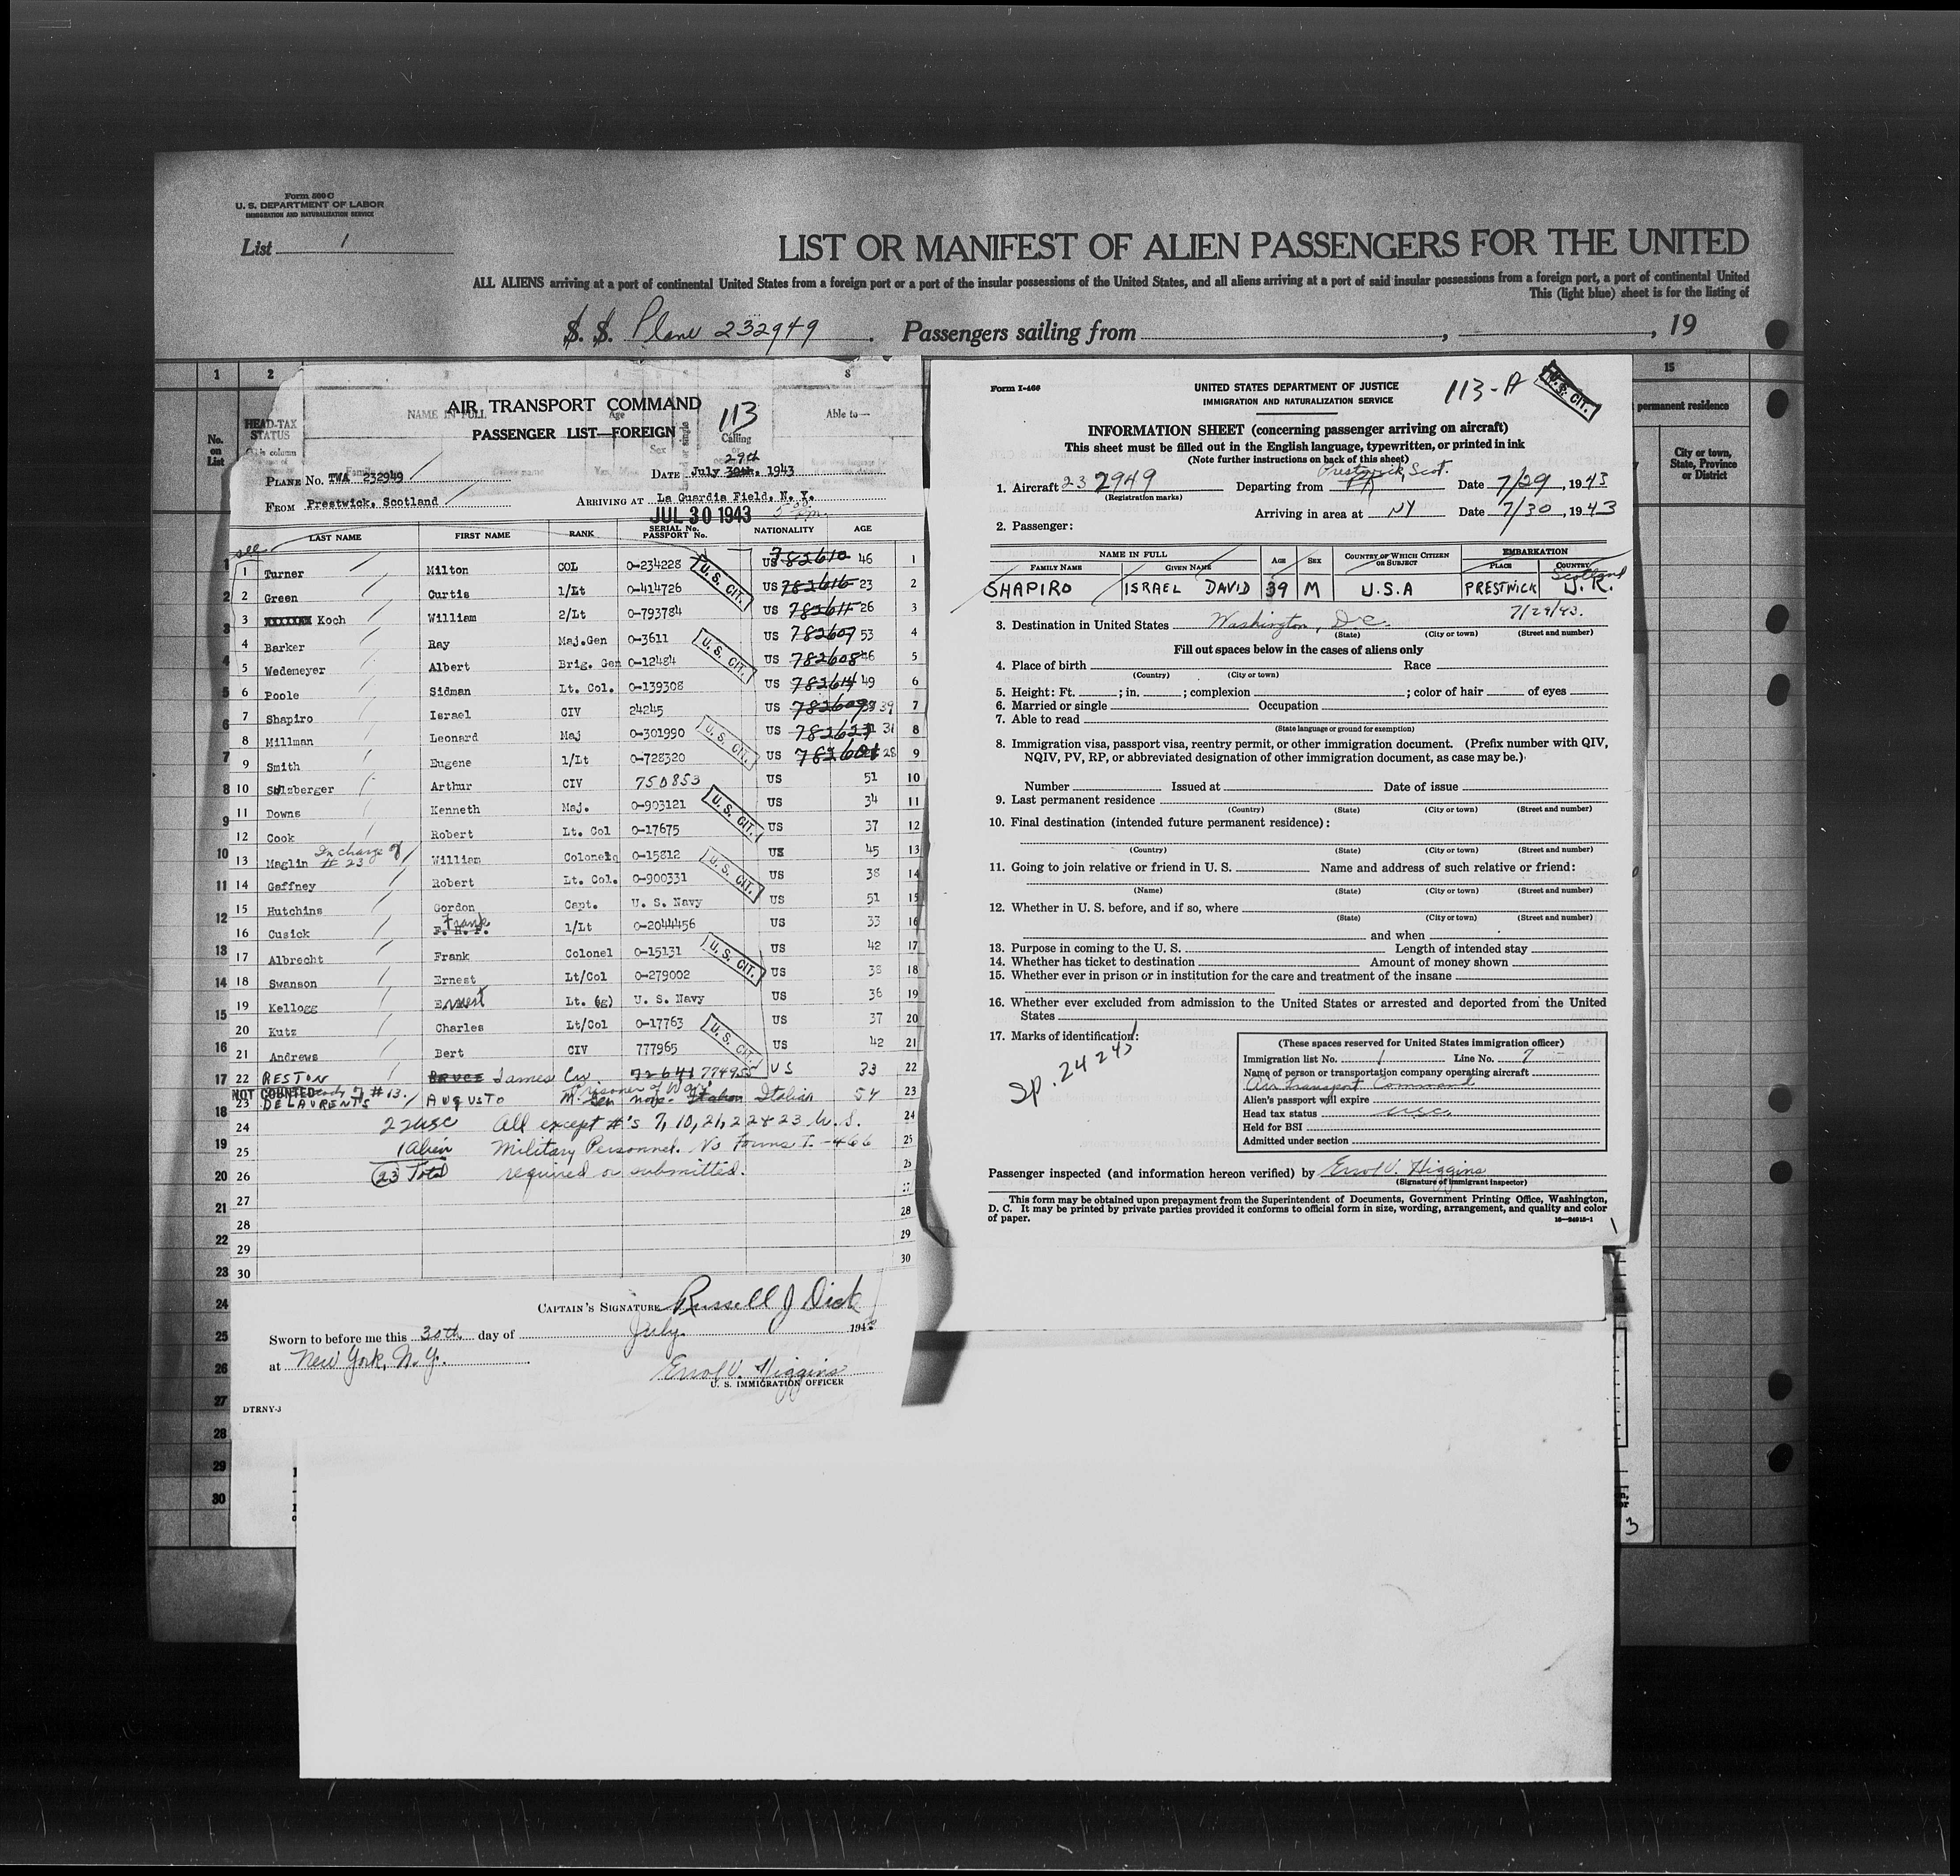 Form 500 C
U. S. DEPARTMENT OF LABOR
IMMIGRATION AND NATURALIZATION SERVICE
List 1
LIST OR MANIFEST OF ALIEN PASSENGERS FOR THE UNITED
ALL ALIENS arriving at a port of continental United States from a foreign port or a part of the insular possessions of the United States, and all aliens arriving at a port of said insular possessions from a foreign port, a port of continental United
This (light blue) sheet is for the listing of
S. S. Plane 232949. Passengers sailing from , , 19
1 2 3 4 8
HEAD-TAX STATUS
No. on List
NAME IN FULL
Age
Sex
Calling
Able to—
AIR TRANSPORT COMMAND
PASSENGER LIST—FOREIGN
113
29th
PLANE NO. TWA 232949 DATE July 30th, 1943
FROM Prestwick, Scotland ARRIVING AT La Guardia Field, N. Y.
JUL 30 1943
LAST NAME FIRST NAME RANK SERIAL No. PASSPORT No. NATIONALITY AGE
1 Turner Milton COL 0-234228 US 782610 46 1
2 Green Curtis 1/Lt 0-414726 US 782616 23 2
3 XXXXXXX Koch William 2/Lt 0-793784 US 782611 26 3
4 Barker Ray Maj.Gen 0-3611 US 782607 53 4
5 Wedemeyer Albert Brig. Gen 0-12484 US 782608 46 5
6 Poole Sidman Lt. Col. 0-139308 US 782614 49 6
7 Shapiro Israel CIV 24245 US 39 7
8 Millman Leonard Maj 0-301990 US 31 8
9 Smith Eugene 1/Lt 0-728320 US 28 9
10 Sulzberger Arthur CIV 750853 US 51 10
11 Downs Kenneth Maj. 0-903121 US 34 11
12 Cook Robert Lt. Col 0-17675 US 37 12
In charge of # 23
13 Maglin William Colonel 0-15812 US 45 13
14 Gaffney Robert Lt. Col. 0-900331 US 38 14
15 Hutchins Gordon Capt. U. S. Navy US 51 15
16 Cusick Frank 1/Lt 0-2044456 US 33 16
17 Albrecht Frank Colonel 0-15131 US 42 17
18 Swanson Ernest Lt/Col 0-279002 US 38 18
19 Kellogg Ernest Lt. (sg) U. S. Navy US 36 19
20 Kutz Charles Lt/Col 0-17763 US 37 20
21 Andrews Bert CIV 777965 US 42 21
22 RESTON BRUCE James Civ 72641 774955 US 33 22
NOT COUNTED # 13. Prisoner of War
23 DE LAURENTIS AUGUSTO M. Gen none Italian Italian 54 23
24 22 USC All except #'s 7, 10, 21, 22 & 23 U. S. 24
25 1 Alien Military Personnel. No Forms I-466 25
26 23 Total required or submitted.
27
28 28
29 29
30 30
U. S. CIT.
U. S. CIT.
U. S. CIT.
U. S. CIT.
U. S. CIT.
U. S. CIT.
U. S. CIT.
CAPTAIN'S SIGNATURE Russell J Dick
Sworn to before me this 30th day of July 194
at New York, N.Y.
Errol V. Higgins
U. S. IMMIGRATION OFFICER
DTRNY-3
Form I-466
UNITED STATES DEPARTMENT OF JUSTICE
IMMIGRATION AND NATURALIZATION SERVICE
113-A
U. S. CIT.
INFORMATION SHEET (concerning passenger arriving on aircraft)
This sheet must be filled out in the English language, typewritten, or printed in ink
(Note further instructions on back of this sheet)
Prestwick, Scot.
1. Aircraft 232949 Departing from Date 7/29, 1943
(Registration marks)
Arriving in area at NY Date 7/30, 1943
2. Passenger:
NAME IN FULL AGE SEX COUNTRY OF WHICH CITIZEN OR SUBJECT EMBARKATION
FAMILY NAME GIVEN NAME PLACE COUNTRY
Scotland
SHAPIRO ISRAEL DAVID 39 M U.S.A PRESTWICK U.K.
7/29/43.
3. Destination in United States Washington, D.C.
(State) (City or town) (Street and number)
Fill out spaces below in the cases of aliens only
4. Place of birth Race
(Country) (City or town)
5. Height: Ft. ; in. ; complexion ; color of hair of eyes
6. Married or single Occupation
7. Able to read
(State language or ground for exemption)
8. Immigration visa, passport visa, reentry permit, or other immigration document. (Prefix number with QIV,
NQIV, PV, RP, or abbreviated designation of other immigration document, as case may be.)
Number Issued at Date of issue
9. Last permanent residence
(Country) (State) (City or town) (Street and number)
10. Final destination (intended future permanent residence):
(Country) (State) (City or town) (Street and number)
11. Going to join relative or friend in U. S. Name and address of such relative or friend:
(Name) (State) (City or town) (Street and number)
12. Whether in U. S. before, and if so, where
(State) (City or town) (Street and number)
and when
13. Purpose in coming to the U. S. Length of intended stay
14. Whether has ticket to destination Amount of money shown
15. Whether ever in prison or in institution for the care and treatment of the insane
16. Whether ever excluded from admission to the United States or arrested and deported from the United
States
17. Marks of identification:
Sp. 24245
(These spaces reserved for United States immigration officer)
Immigration list No. 1 Line No. 7
Name of person or transportation company operating aircraft
Air Transport Command
Alien's passport will expire
Head tax status USC
Held for BSI
Admitted under section
Passenger inspected (and information hereon verified) by Errol V. Higgins
(Signature of immigrant inspector)
This form may be obtained upon prepayment from the Superintendent of Documents, Government Printing Office, Washington,
D. C. It may be printed by private parties provided it conforms to official form in size, wording, arrangement, and quality and color
of paper.
16—24915-1
1
15
permanent residence
City or town, State, Province or District
3